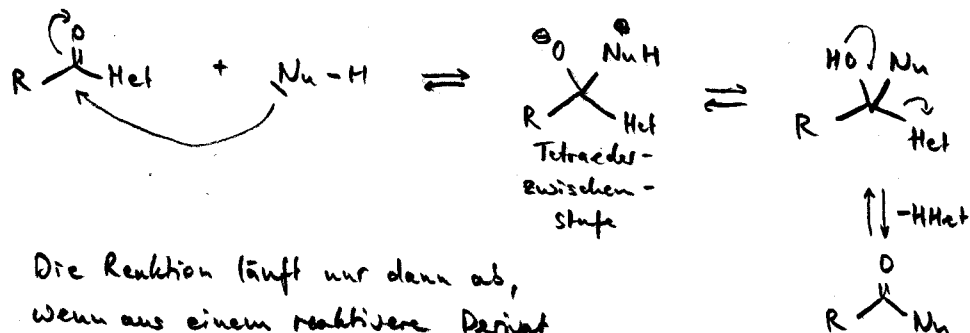 O
R Het + Nu-H ⇌ ⊖O ⊕NuH R Het ⇌ HO Nu R Het
Tetraeder-
zwischen-
stufe
-HHet
O
R Nu
Die Reaktion läuft nur dann ab,
wenn aus einem reaktivere Derivat